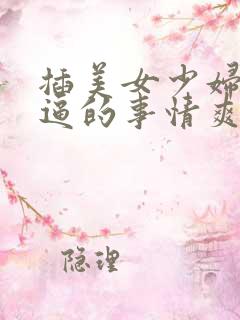 插美女少婦
逼的事情爽
隐理